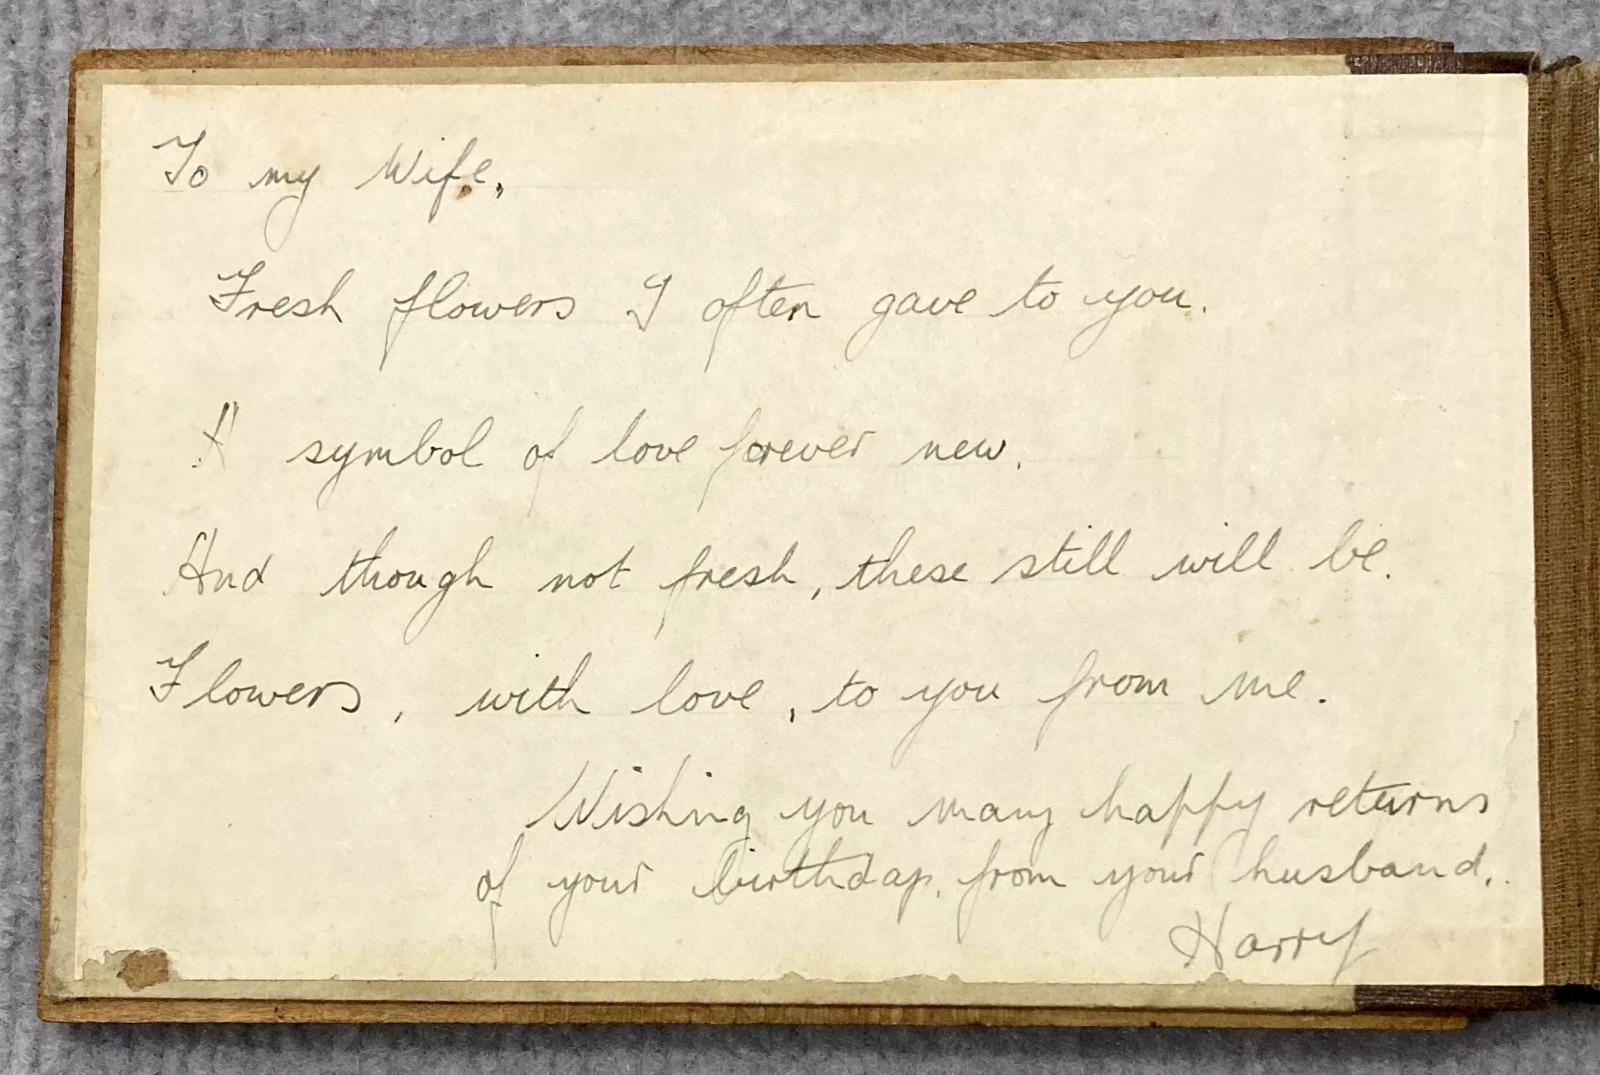 To my Wife,
Fresh flowers I often gave to you.
A symbol of love forever new.
And though not fresh, these still will be.
Flowers, with love, to you from me.
Wishing you many happy returns
of your birthday. from your husband.
Harry